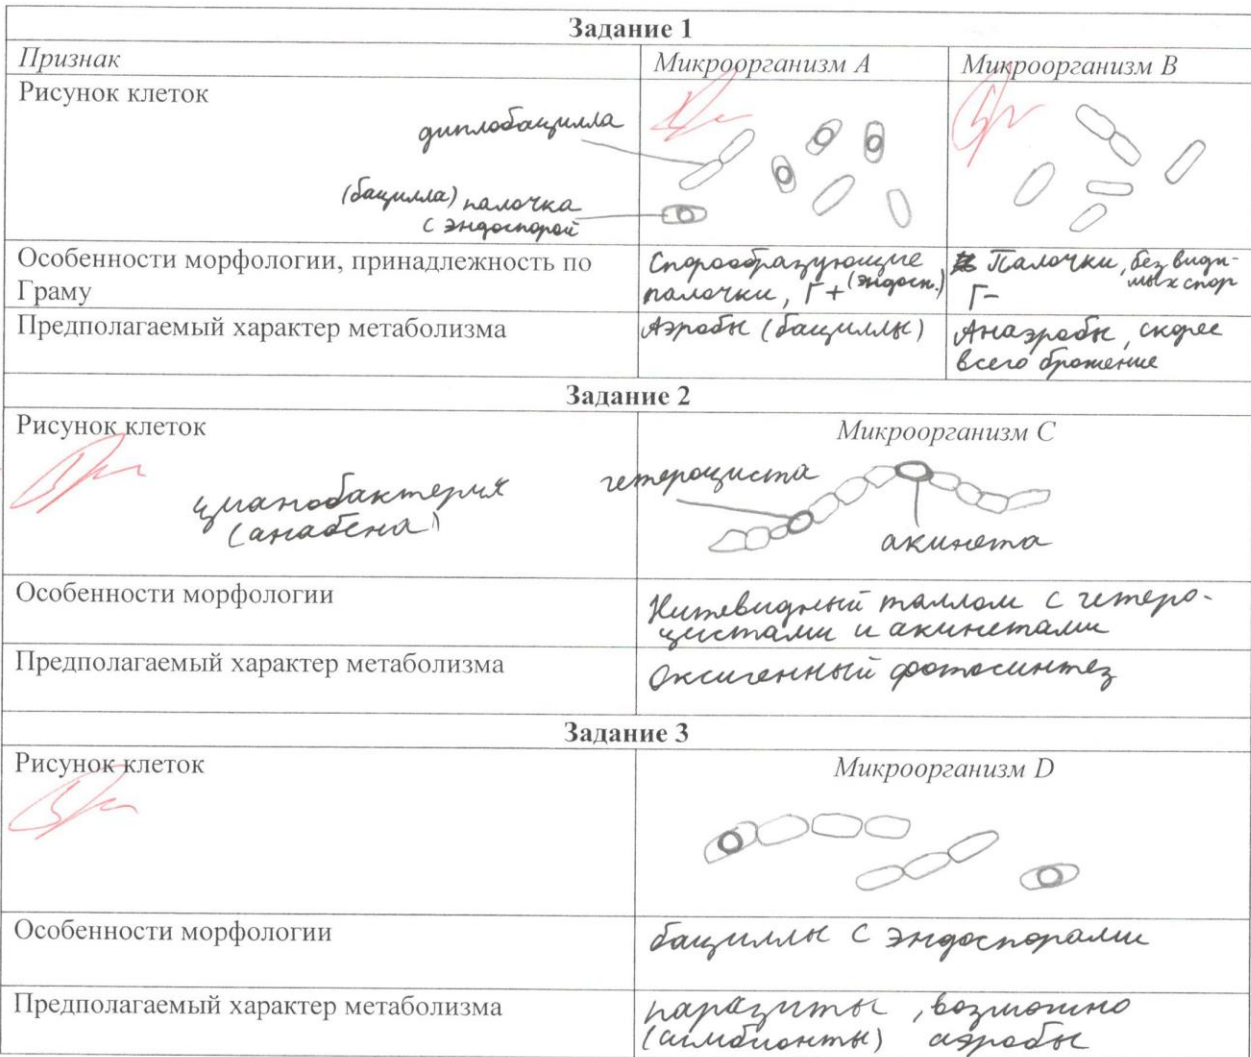 Задание 1
Признак Микроорганизм А Микроорганизм В
Рисунок клеток
диплобацилла
(бацилла) палочка
с эндоспорой
Особенности морфологии, принадлежность по
Граму
Спорообразующие
палочки, Г+ (эндосп.)
Палочки, без види-
мых спор
Г-
Предполагаемый характер метаболизма
Аэробы (бациллы)
Анаэробы, скорее
всего брожение
Задание 2
Рисунок клеток Микроорганизм С
цианобактерия
(анабена)
гетероциста
акинета
Особенности морфологии
Нитевидный таллом с гетеро-
цистами и акинетами
Предполагаемый характер метаболизма
Оксигенный фотосинтез
Задание 3
Рисунок клеток Микроорганизм D
Особенности морфологии
бациллы с эндоспорами
Предполагаемый характер метаболизма
паразиты, возможно
(симбионты) аэробы